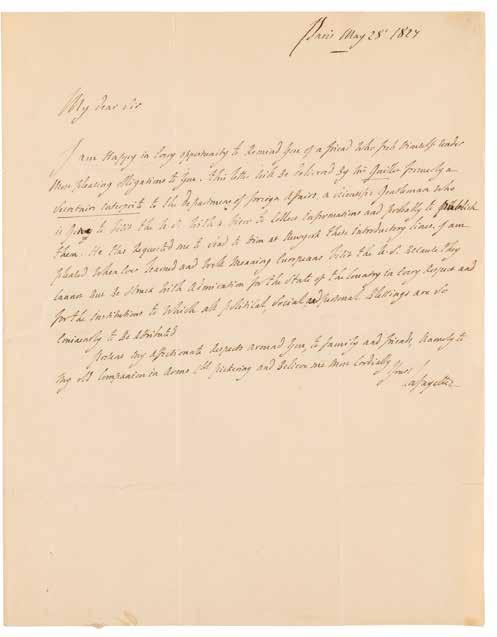 Paris May 28h 1827
My dear Sir
I am Happy in Every opportunity to Remind You of a friend Who feels Himself Under
Most pleasing obligations to You. This letter will be delivered by Mr Quiller formerly a
Secretaire interprete to the department of foreign Affairs, a Scientific Gentleman Who
is going to Visit the U.S. With a View to Collect informations and probably to publish
them. He Has Requested me to Send to Him at Newyork these Introductory lines. I am
pleased When Ever Learned and Well Meaning Europeans Visit the U.S. Because they
Cannot But Be Struck With Admiration for the State of the Country in Every Respect and
for the institutions to Which all political, Social, and personal Blessings are So
Eminently to Be Attributed
present my affectionate Respects around You, to family and friends, Namely to
My old Companion in Arms Col. pickering and Believe me Most Cordially
Yours
Lafayette